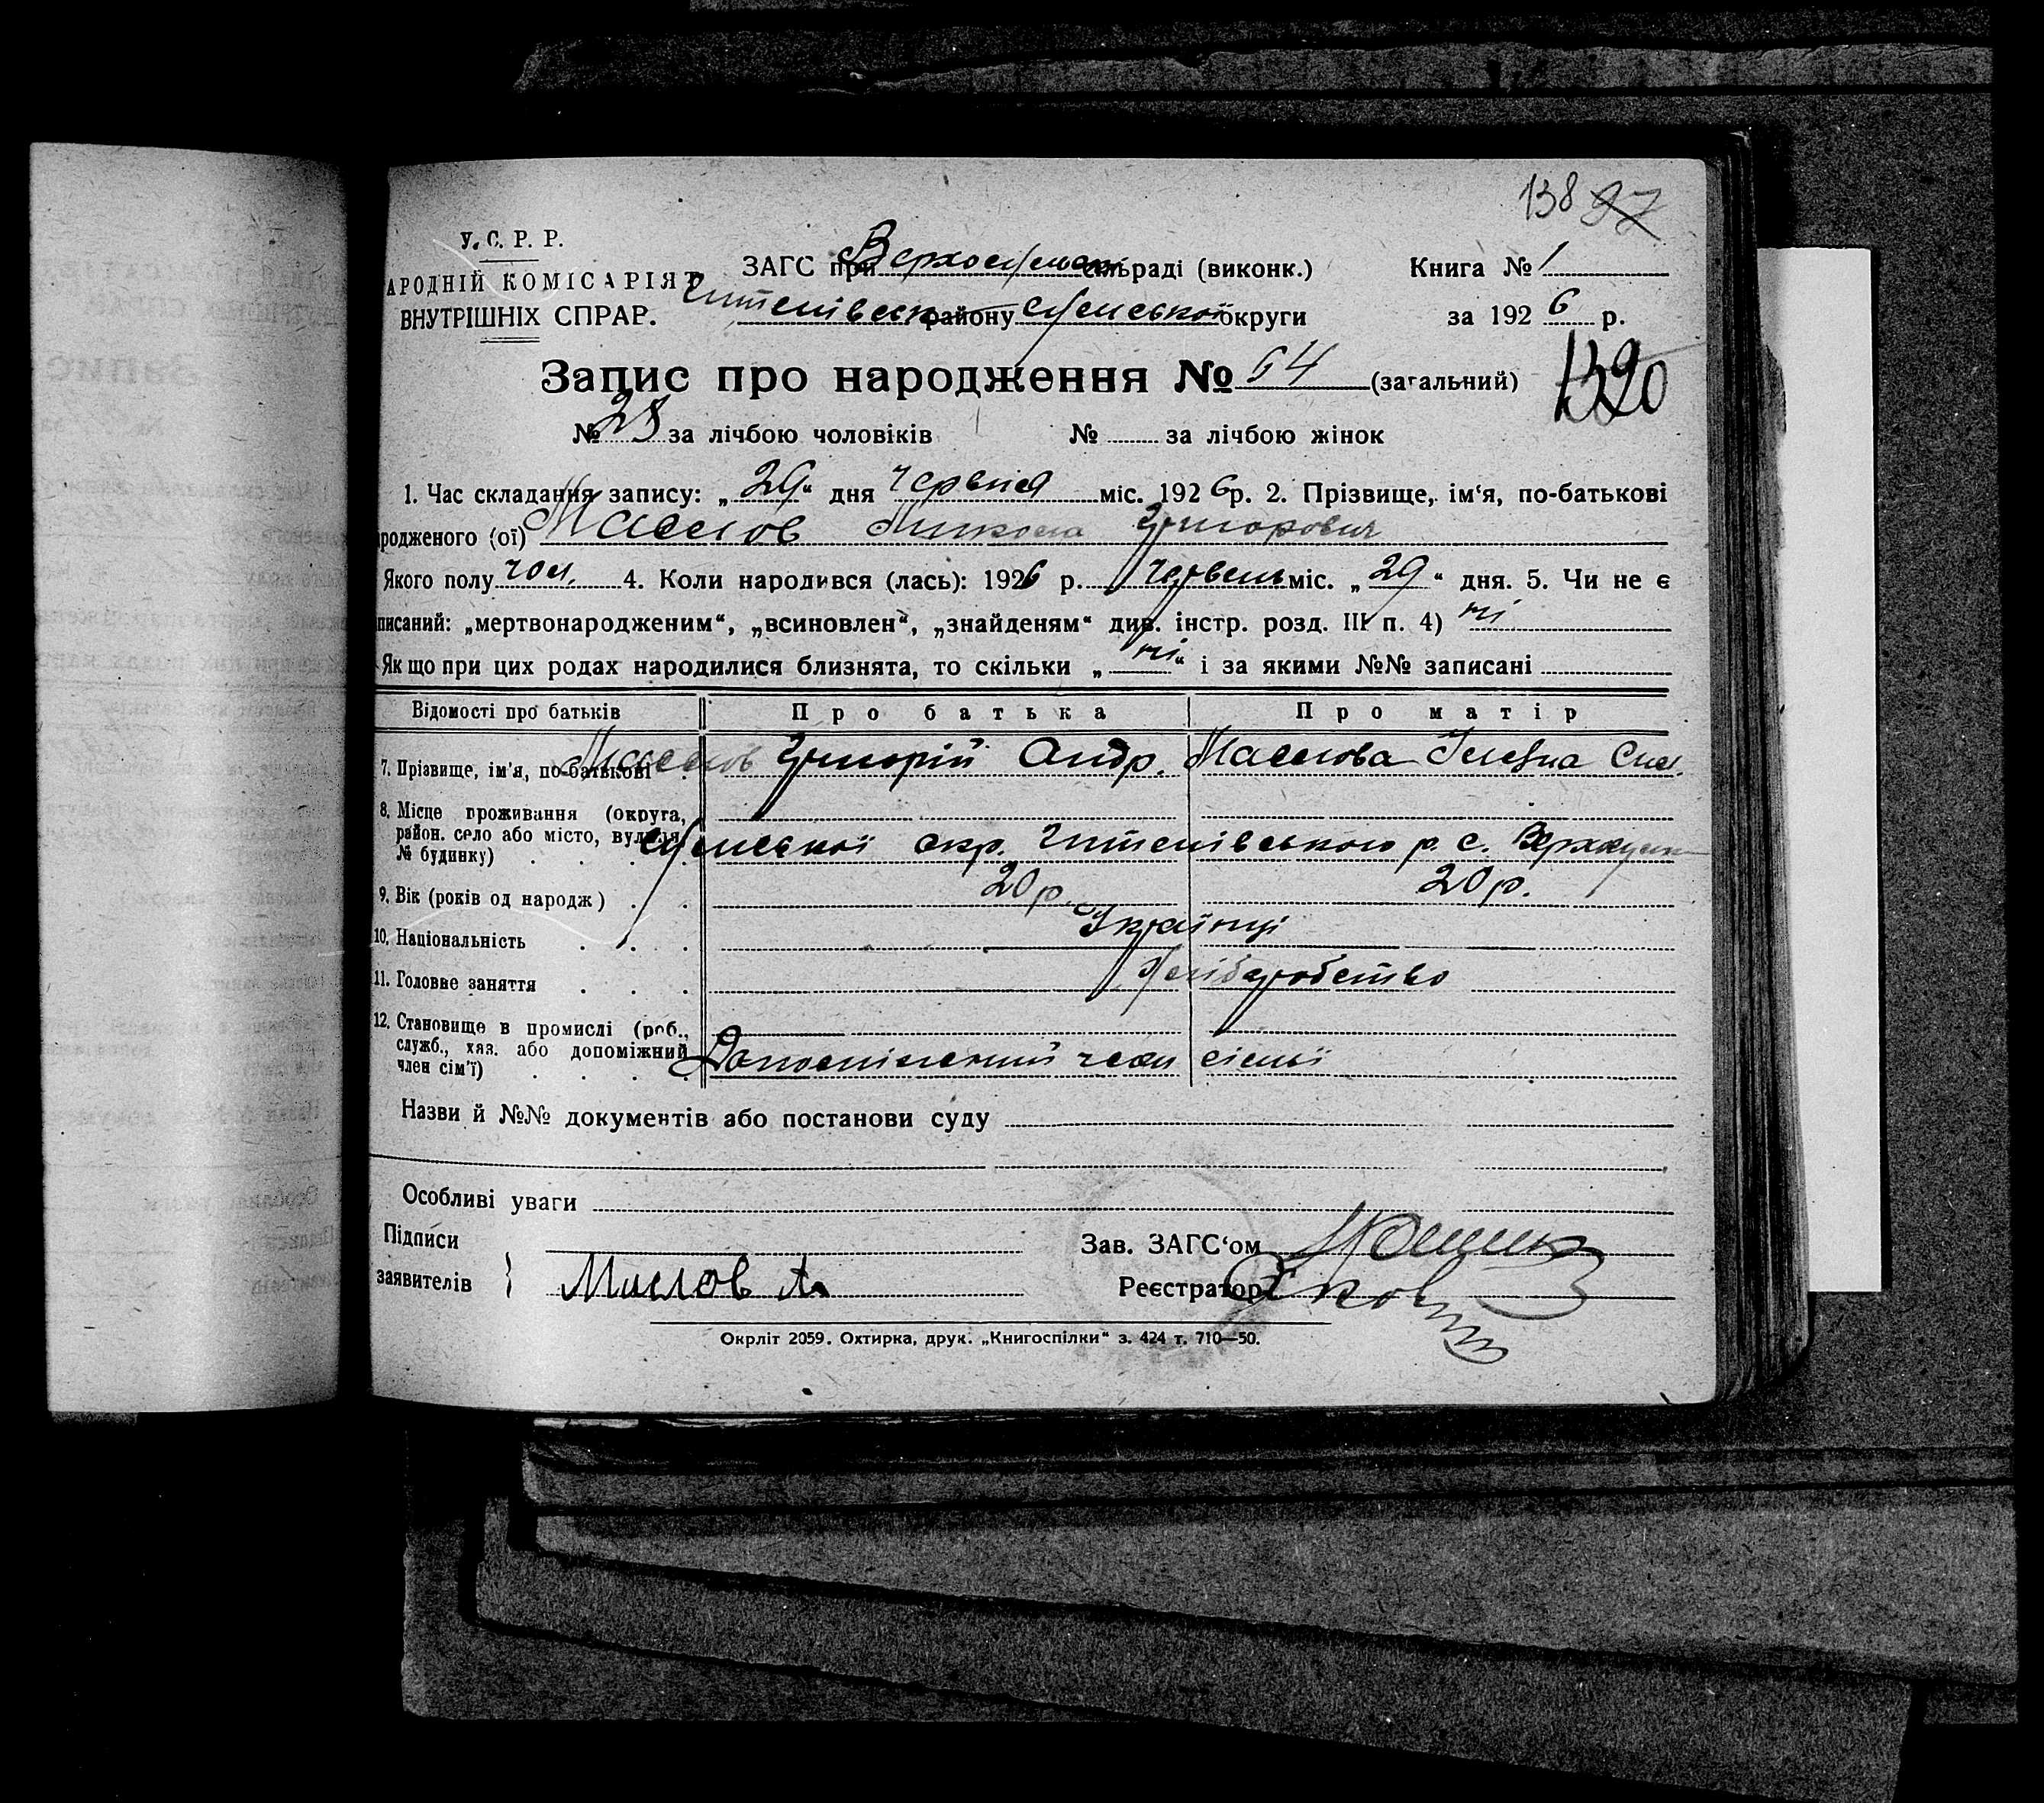 138 97
У. С. Р. Р.
АРОДНІЙ КОМІСАРІЯТ
ВНУТРІШНІХ СПРАР.
ЗАГС при Верхосумськ сільраді (виконк.)
Книга № 1
району Сумської округи
за 1926 р.
Запис про народження № 64 (загальний)
1390
№ 28 за лічбою чоловіків № за лічбою жінок
1. Час складання запису: „29“ дня Червня міс. 1926 р. 2. Прізвище, ім‘я, по-батькові
родженого (ої) Маслов Микола Григорович
Якого полу чол. 4. Коли народився (лась): 1926 р. Червень міс. „29“ дня. 5. Чи не є
писаний: „мертвонародженим“, „всиновлен“, „знайденям“ див. інстр. розд. III п. 4) ні
Якщо при цих родах народилися близнята, то скільки „ні“ і за якими №№ записані
Відомості про батьків Про батька Про матір
7. Прізвище, ім‘я, по-батькові Маслов Григорій Андр. Маслова
8. Місце проживання (округа,
район. село або місто, вулиця,
№ будинку) Сумської окр. р. с.
9. Вік (років од народж) 20 р. 20 р.
10. Національність Українці
11. Головне заняття Хліборобство
12. Становище в промислі (роб.,
служб., хяз. або допоміжний
член сім‘ї) Допоміжний член сімьї
Назви й №№ документів або постанови суду
Особливі уваги
Підписи
заявителів } Маслов
Зав. ЗАГС‘ом
Реєстратор
Окрліт 2059. Охтирка, друк. „Книгоспілки“ з. 424 т. 710—50.